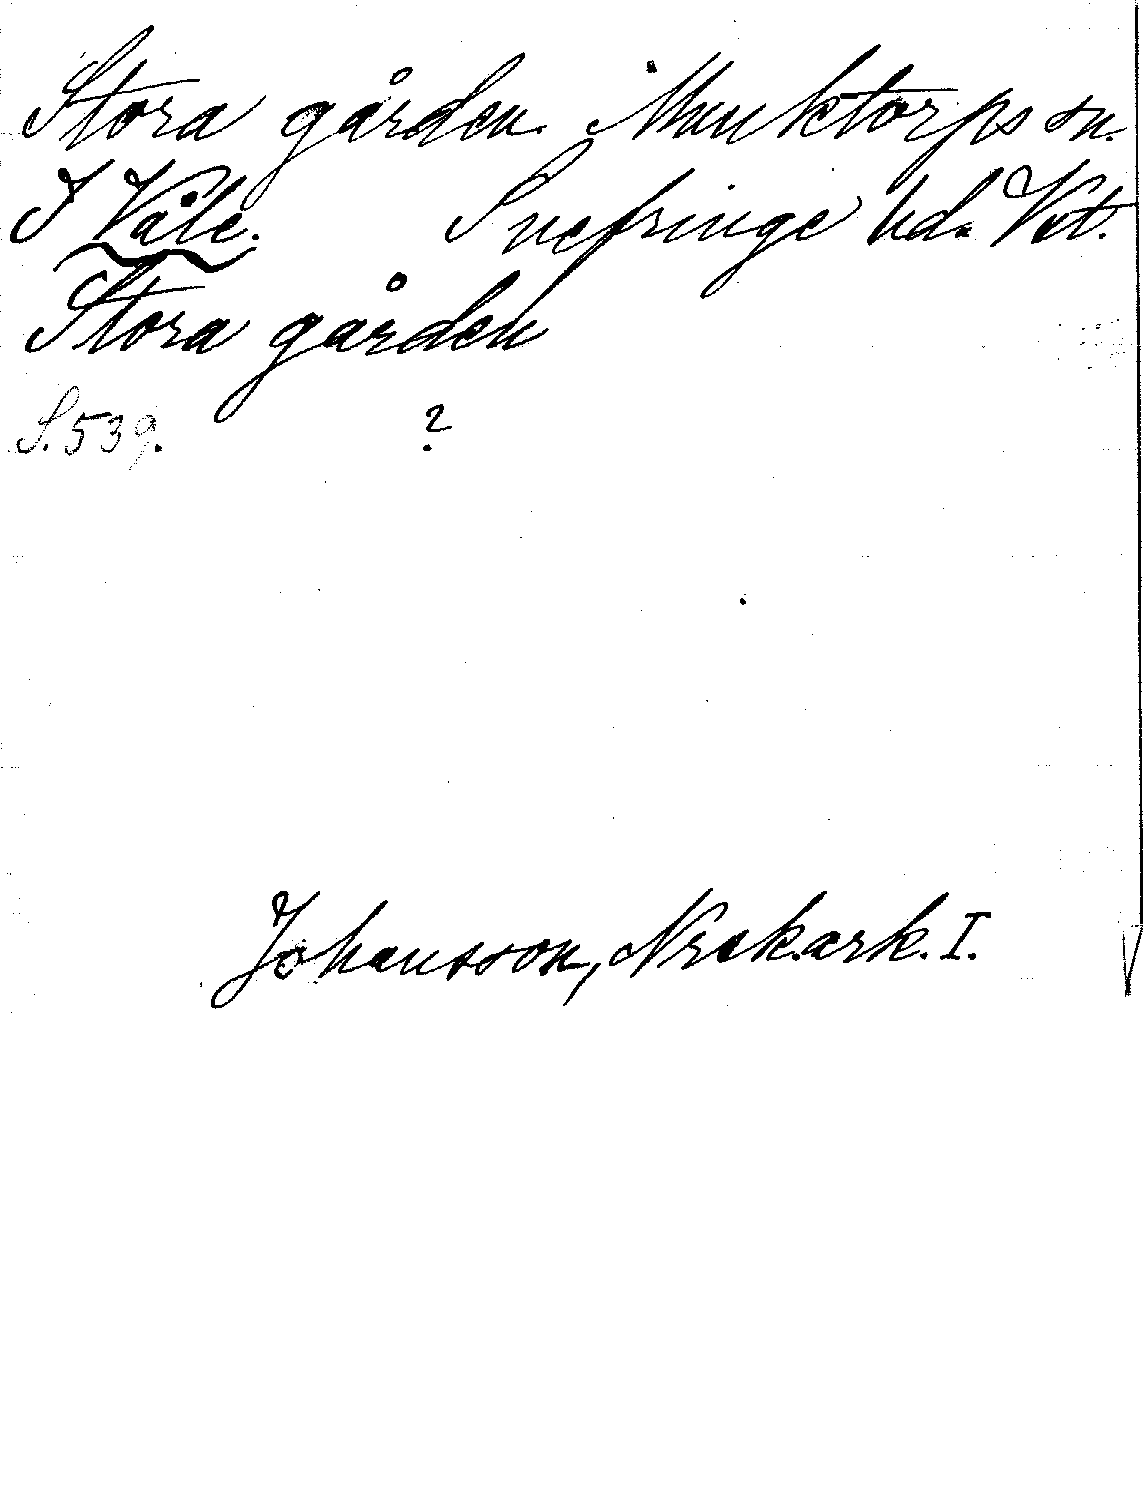 Stora gården. Munktorps sn.
I Våle. Snefringe hd. Vst.
Stora gården
S. 539. ?
Johansson, Nrak.ark. I.